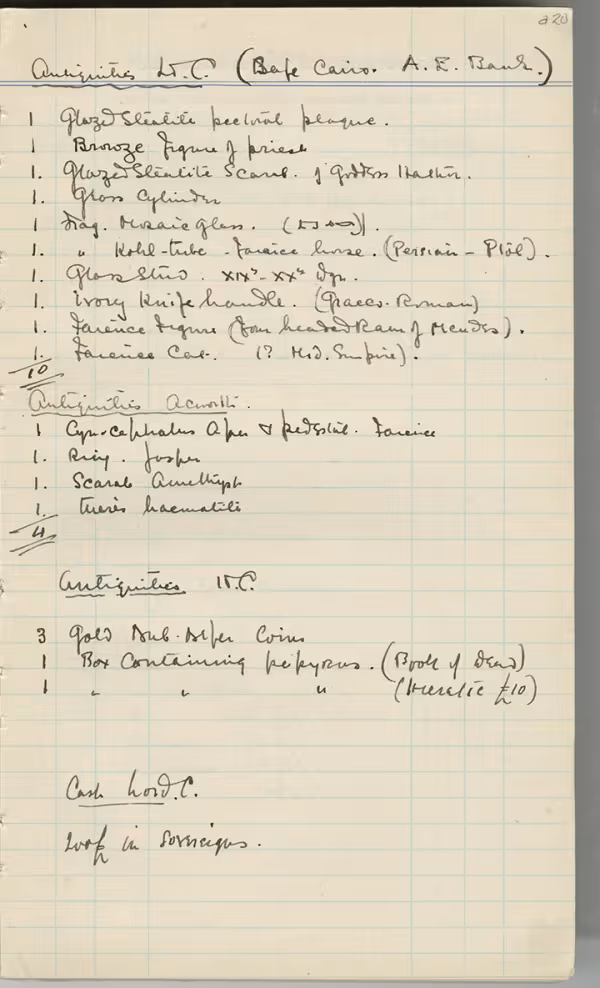 220
Antiquities Ld. C. (Safe Cairo. A. E. Bank.)
1 Glazed Steatite pectoral plaque.
1 Bronze Figure of priest
1. Glazed Steatite Scarab. of Goddess Hathor.
1. Glass Cylinder
1 Frag. Mosaic Glass.
1. " Kohl-tube - Faience horse. (Persian - Ptol).
1. Glass Stud. XIXth - XXth Dyn.
1. Ivory Knife handle. (Graeco-Roman)
1. Faience Figure (four headed Ram of Mendes).
1. Faience Cat. (? Mid. Empire).
10
Antiquities Acworth.
1 Cynocephalus Ape & pedestal. Faience
1. Ring. Jasper
1. Scarab Amethyst
1. tueris haematite
4
Antiquities Ld. C.
3 Gold Coins
1 Box Containing papyrus. (Book of Dead)
1 " " " (Hieratic £10)
Cash Lord. C.
200£ in Sovereigns.